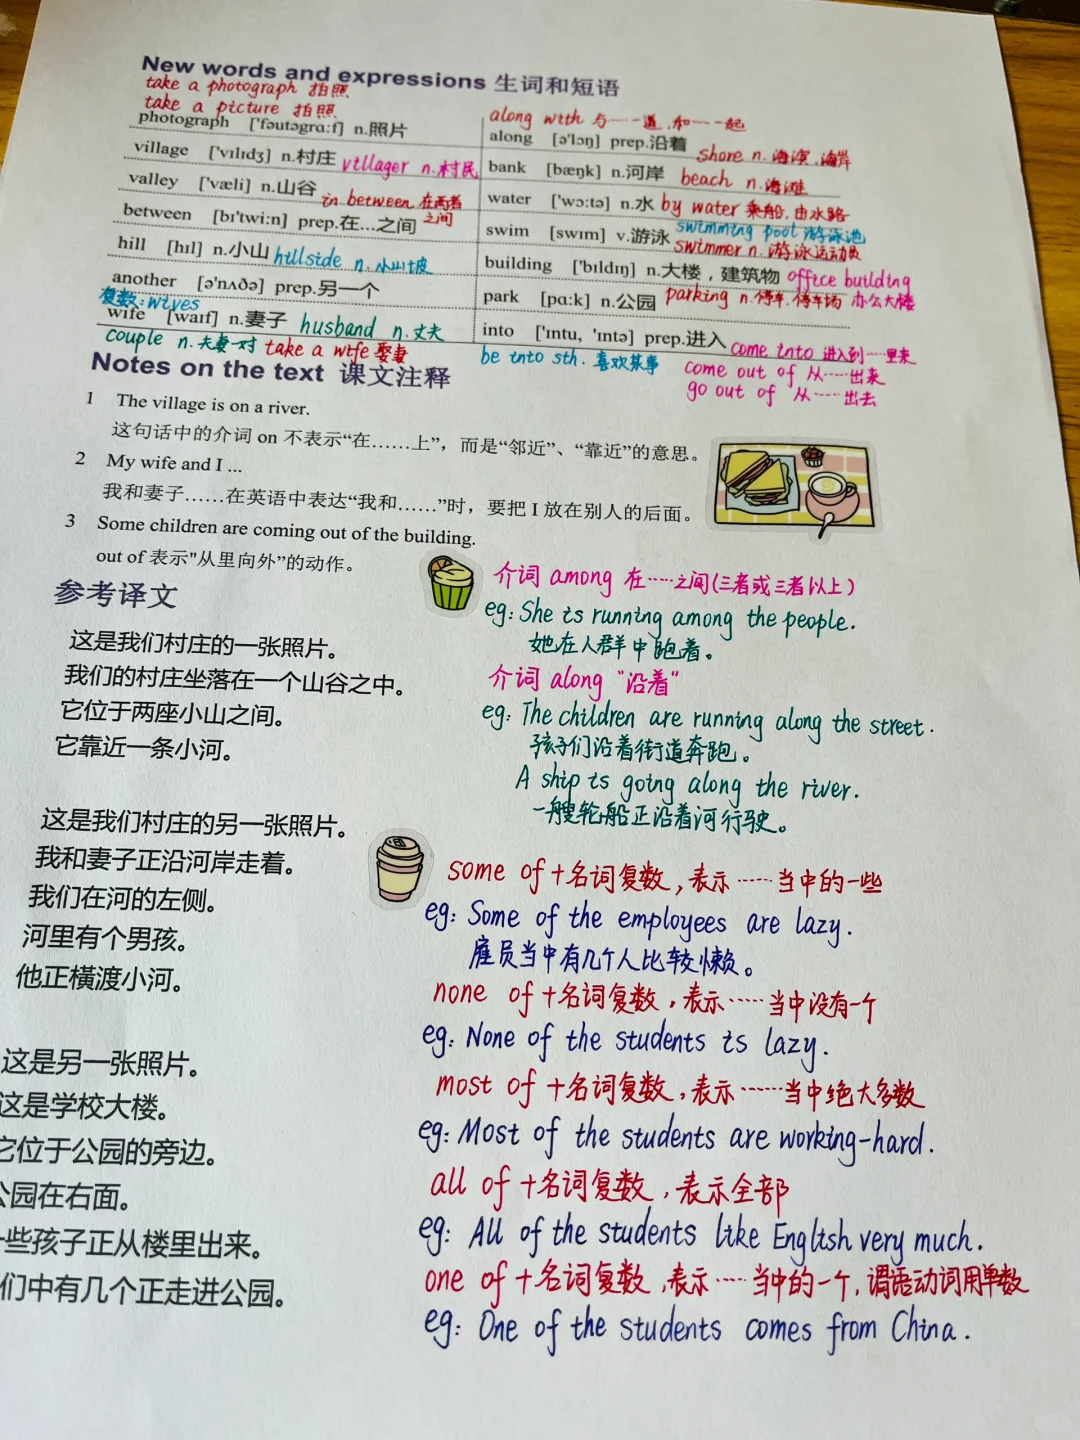 New words and expressions 生词和短语
take a photograph 拍照
take a picture 拍照
photograph ['fəutəgrɑ:f] n.照片
village ['vɪlɪdʒ] n.村庄 villager n.村民
valley ['væli] n.山谷
in between 在两者之间
between [bɪ'twi:n] prep.在…之间
hill [hɪl] n.小山 hillside n.小山坡
another [ə'nʌðə] prep.另一个
复数:wives
wife [waɪf] n.妻子 husband n.丈夫
couple n.夫妻一对 take a wife 娶妻
along with 与……一道,和……一起
along [ə'lɔŋ] prep.沿着
shore n.海滨.海岸
bank [bæŋk] n.河岸 beach n.海滩
water ['wɔ:tə] n.水 by water 乘船,由水路
swimming pool 游泳池
swim [swɪm] v.游泳 swimmer n.游泳运动员
building ['bɪldɪŋ] n.大楼，建筑物 office building
办公大楼
park [pɑ:k] n.公园 parking n.停车.停车场
into ['ɪntu, 'ɪntə] prep.进入 come into 进入到……里来
be into sth. 喜欢某事
come out of 从……出来
go out of 从……出去
Notes on the text 课文注释
1 The village is on a river.
这句话中的介词 on 不表示“在……上”，而是“邻近”、“靠近”的意思。
2 My wife and I ...
我和妻子……在英语中表达“我和……”时，要把 I 放在别人的后面。
3 Some children are coming out of the building.
out of 表示"从里向外”的动作。
参考译文
这是我们村庄的一张照片。
我们的村庄坐落在一个山谷之中。
它位于两座小山之间。
它靠近一条小河。
这是我们村庄的另一张照片。
我和妻子正沿河岸走着。
我们在河的左侧。
河里有个男孩。
他正横渡小河。
这是另一张照片。
这是学校大楼。
它位于公园的旁边。
公园在右面。
一些孩子正从楼里出来。
们中有几个正走进公园。
介词 among 在……之间(三者或三者以上)
eg: She is running among the people.
她在人群中跑着。
介词 along “沿着”
eg: The children are running along the street.
孩子们沿着街道奔跑。
A ship is going along the river.
一艘轮船正沿着河行驶。
some of +名词复数,表示……当中的一些
eg: Some of the employees are lazy.
雇员当中有几个人比较懒。
none of +名词复数,表示……当中没有一个
eg: None of the students is lazy.
most of +名词复数,表示……当中绝大多数
eg: Most of the students are working-hard.
all of +名词复数,表示全部
eg: All of the students like English very much.
one of +名词复数,表示……当中的一个,谓语动词用单数
eg: One of the students comes from China.